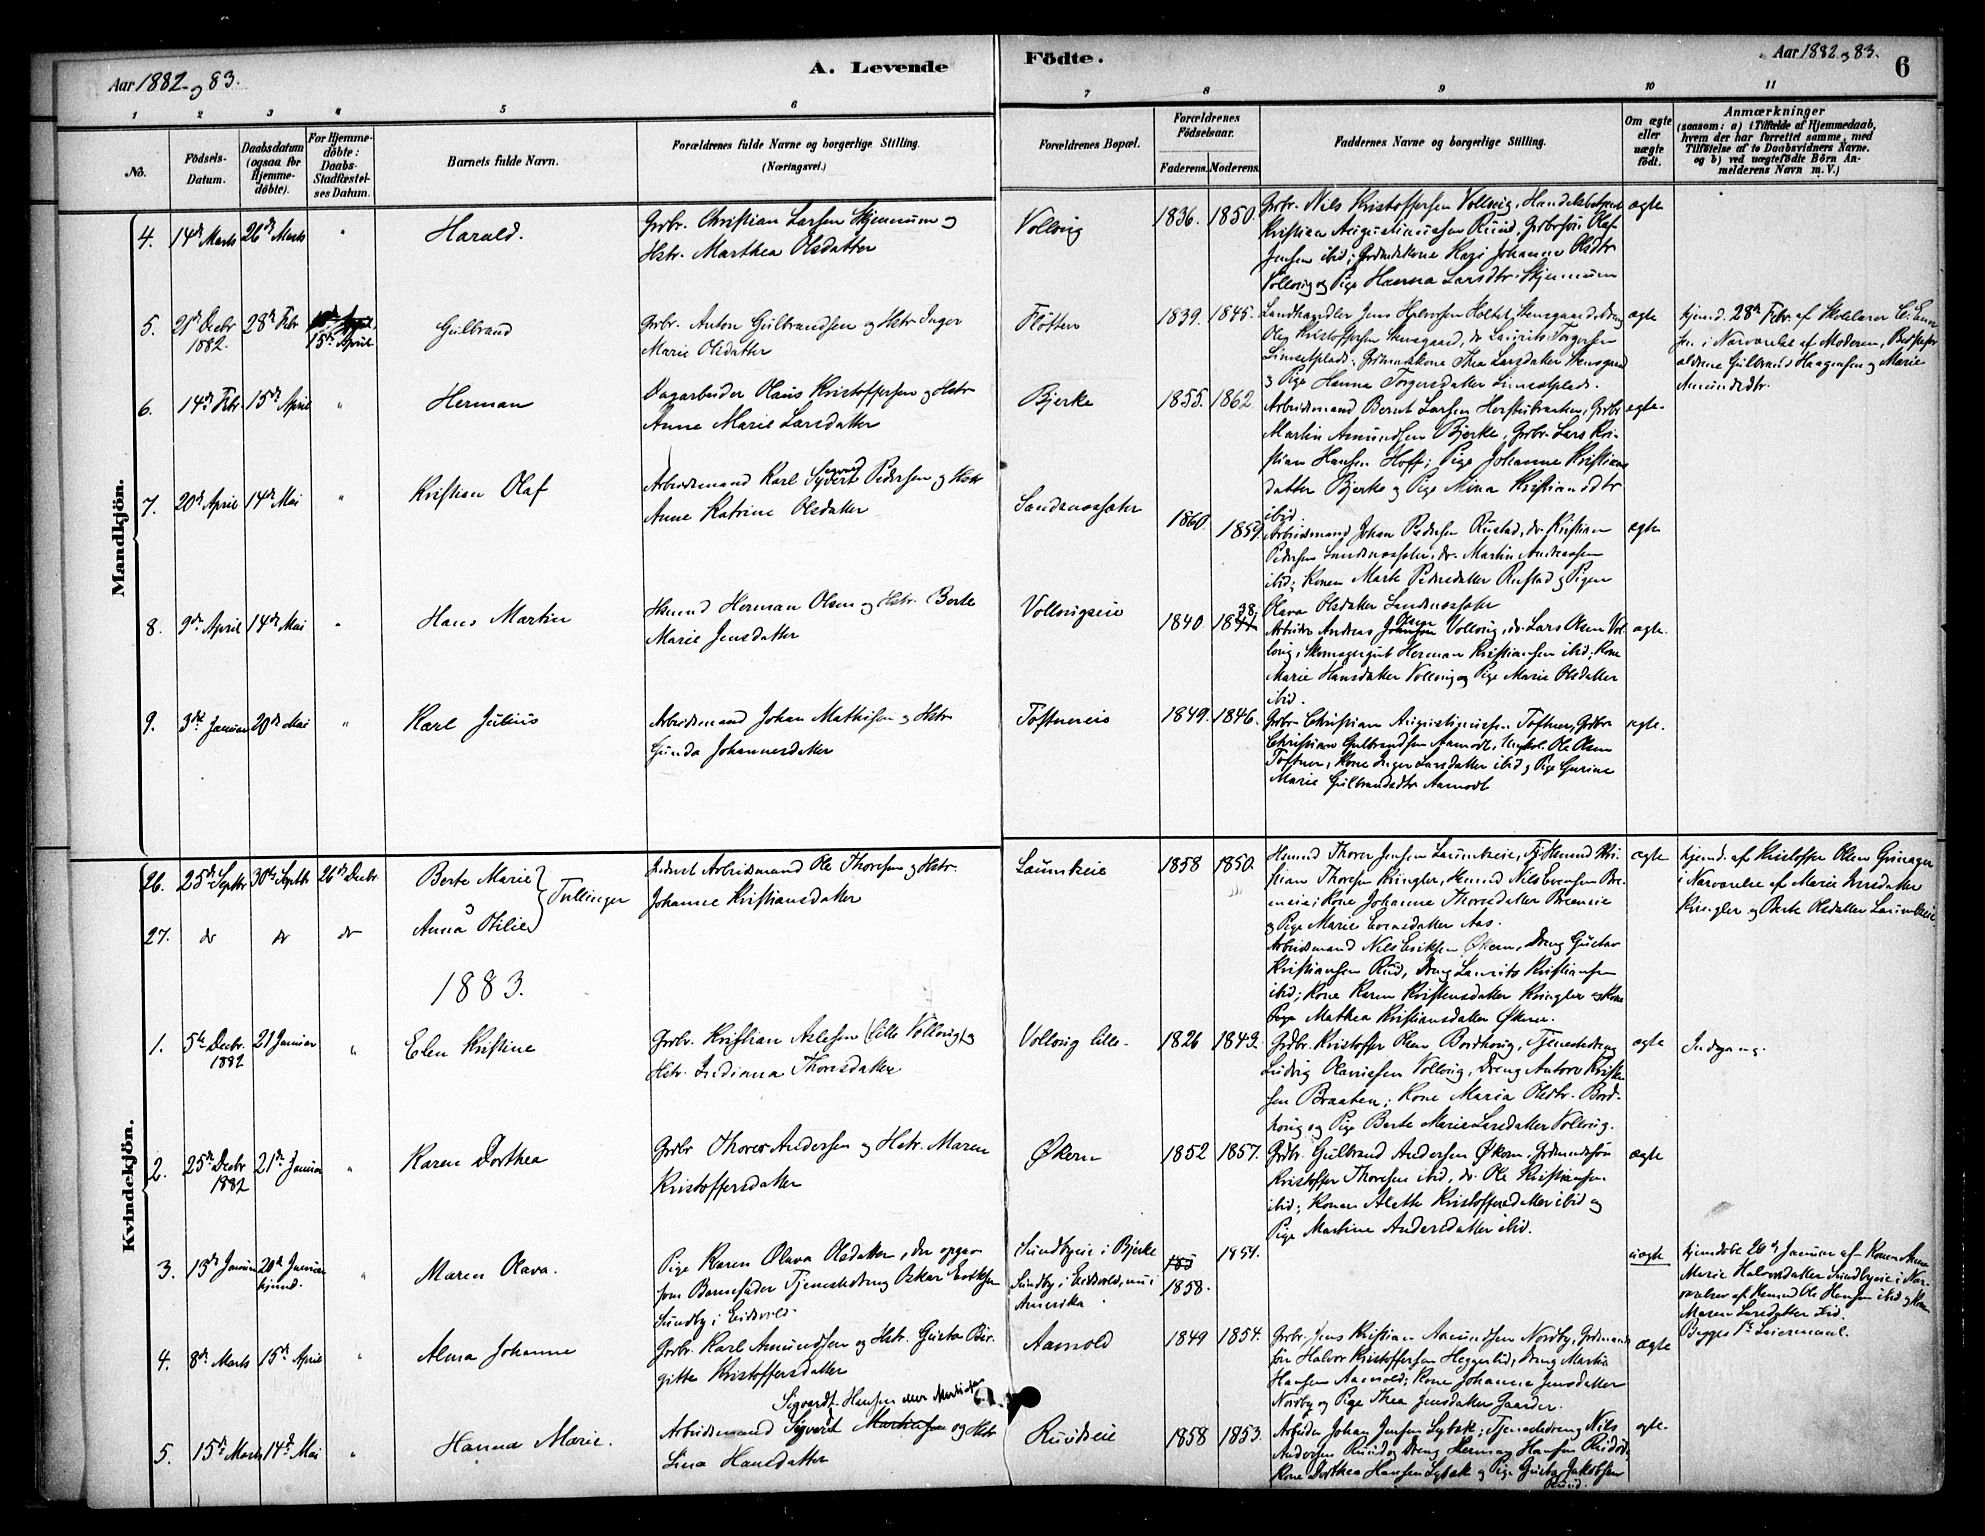 Aar 1882 og 83.
A. Levende
Födte.
Aar 1882 og 83.
6
1 2 3 4 5 6 7 8 9 10 11
No.
Födsels-Datum.
Daabsdatum (ogsaa for Hjemme-döbte).
For Hjemme-döbte: Daabs-Stadfæstel-ses Datum.
Barnets fulde Navn.
Forældrenes fulde Navne og borgerlige Stilling.
(Næringsvei.)
Forældrenes Bopæl.
Forældrenes Födselsaar.
Faderens. Moderens.
Faddernes Navne og borgerlige Stilling.
Om ægte eller uægte födt.
Anmærkninger
(saasom: a) i Tilfælde af Hjemmedaab,
hvem der har forrettet samme, med
Tilföielse af to Daabsvidners Navne.
og b) ved uægtefödte Börn An-
melderens Navn m. V.)
Mandkjön.
4. 14de Marts 26de Marts " Harald.
Grbr. Christian Larsen Skjennum og
Hstr. Marthea Olsdatter
Vollovig 1836. 1850.
Grbr. Nils Kristoffersen Vollovig, Handelsbetjent
Kristian Augustinussen Ruud, Grbrsøn Olaf
Jensen ibid; Kari Johanne Olsdtr
Vollovig og Pige Hanna Larsdtr. Skjennum
ægte
5. 21de Decbr 1882. 28de Febr 15de April Gulbrand
Grbr. Anton Gulbrandsen og Hstr Inger
Marie Olsdatter
Fløtten 1839. 1845.
Landhandler Jens Halvorsen Holstad,
Ole Kristoffersen Stensgaard, do Laurits Torgersen
Thea Larsdatter Stensgaard
og Pige Hanna Torgersdatter
ægte
hjemd. 28de Febr. af Skolelærer
i Nærværelse af Moderen, Bedstefor-
ældrene Gulbrand Haagensen og Marie
Amundsdtr.
6. 14de Febr. 15de April " Herman
Dagarbeider Olaus Kristoffersen og Hstr
Anne Marie Larsdatter
Bjerke 1855. 1862.
Arbeidsmand Bernt Larsen Grbr
Martin Amundsen Bjerke, Grbr. Lars Kri-
stian Hansen Hoff; Pige Johanne Kristians-
datter Bjerke og Pige Mina Kristiansdtr
ibid.
ægte.
7. 20de April 14de Mai " Kristian Olaf
Arbeidsmand Karl Sigvard Syvert Pedersen og Hstr
Anne Katrine Olsdatter
Sandnessæter 1860. 1859.
Arbeidsmand Johan Pedersen Rustad, do. Kristian
Pedersen Sandnessæter, do. Martin Andreassen
ibid; Konen Marte Pedersdatter Rustad og Pigen
Olava Olsdatter Sandnessæter
ægte
8. 9de April 14de Mai " Hans Martin
Hsmd Herman Olsen og Hstr. Berte
Marie Jensdatter
Vollovigseie 1840 1841 38.
Arbeider Andreas Johansen Olsen Vollovig, do. Lars Olsen Vol-
lovig, Skomagergut Herman Kristiansen ibid; Kone
Marie Hansdatter Vollovig og Pige Marie Olsdatter
ibid.
ægte.
9. 3de Januar 20de Mai " Karl Julius
Arbeidsmand Johan Mathisen og Hstr
Gunda Johannesdatter
Toftnereie 1849. 1846.
Grbr Christian Augustinussen Toftner, Grbr
Christian Gulbrandsen Aamodt, Ungk. Ole Olsen
Toftner, Kone Inger Larsdatter ibid og Pige Gurine
Marie Gulbrandsdtr Aamodt
ægte.
Kvindekjön.
26. 25de Septbr 30te Septbr 26de Decbr Berte Marie
27. do do do og Anna Otilie } Tvillinger
Inderst Arbeidsmand Ole Thoresen og Hstr.
Johanne Kristiansdatter
Laumbeie 1858 1850.
Hsmd Thorer Jensen Laumbeie, Hsmd Kri-
stian Thoresen Kringler, Hsmd Nils Evensen Bre-
eneie; Kone Johanne Thorsdatter Breeneie
og Pige Marie Evensdatter Aas.
Arbeidsmand Nils Eriksen Økern, Dreng Gustav
Kristiansen Ruud, Dreng Laurits Kristiansen
ibid; Kone Karen Kristensdatter Kringler og Kone
Pige Mathea Kristiansdatter Økern.
ægte
hjemd. af Kristoffer Olsen Grinager
i Nærværelse af Marie Jensdatter
Kringler og Berte Olsdatter Laumbeie
1883.
1. 5te Decbr. 1882 21 Januar " Elen Kristine
Grbr. Kristian Aslesen (Lille Vollovig) og
Hstr. Indiana Thorsdatter
Vollovig lille. 1826 1849.
Grbr. Kristoffer Olsen Bordhovig, Tjenestedreng
Ludvig Olaussen Vollovig, Dreng Anton Kristen-
sen Braaten; Kone Maria Olsdtr. Bord-
hovig og Pige Berte Marie Larsdatter Vollovig.
ægte
Indgang.
2. 25de Decbr 1882 21de Januar " Karen Dorthea
Grbr Thorer Andersen og Hstr. Maren
Kristoffersdatter
Økern 1852 1857.
Grbr. Gulbrand Andersen Økern, Grdmandssøn
Kristoffer Thoresen ibid, do. Ole Kristiansen
ibid; Konen Alethe Kristoffersdatter ibid og
Pige Martine Andersdatter ibid.
ægte
3. 13de Januar 20de Januar hjemd. " Maren Olava.
Pige Karen Olava Olsdatter, der opgav
som Barnefader Tjenestedreng Oskar Eriksen
Sundby i Eidsvold.
Sundbyeie i Bjerke
Sundby i Eidsvold, nu i
Amerika
185 1858. 1854.
uægte
hjemdøbt 20de Januar af Konen Anne
Marie Halvorsdatter Sundbyeie i Nær-
værelse af Hsmd Ole Hansen ibid og Kone
Maren Larsdatter ibid.
Begges 1ste Leiermaal.
4. 8de Marts 15de April " Alma Johanne
Grbr. Karl Amundsen og Hstr. Gusta Bir-
gitte Kristoffersdatter
Aamold 1849 1854.
Grbr. Jens Kristian Aamundsen Nordby, Grdmands-
søn Halvor Kristoffersen Heggelid, Dreng Martin
Hansen Aamold; Kone Johanna Jensdatter
Nordby og Pige Thea Jensdatter Gaarder.
ægte
5. 15de Marts 14de Mai " Hanna Marie.
Sigvardt Hansen
Arbeidsmand Syvert Martinsen og Hstr
Lina Hansdatter
Ruudseie 1858 1853.
Arbeider Johan Jensen Lybæk; Tjenestedreng Nils
Andersen Ruud og Dreng Herman Hansen
Kone Dorthea Hansen Lybæk og Pige Gusta Jakobsen
Ruud.
ægte.